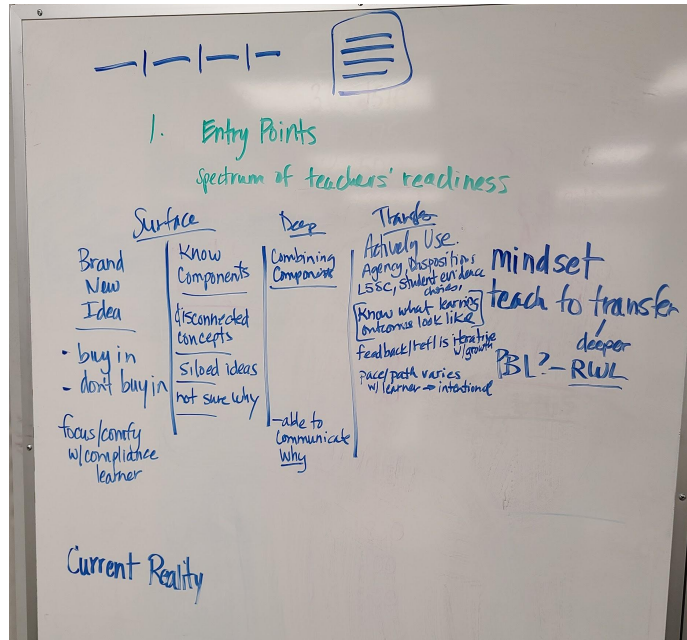 1. Entry Points
Spectrum of teachers' readiness
Surface
Brand
New
Idea
- buy in
- don't buy in
focus/comfy
w/compliance
learner
Know
Components
disconnected
concepts
siloed ideas
not sure why
Deep
Combining
Components
- able to
communicate
why
Transfer
Actively Use
Agency, Dispositions
LSSC, Student evidence
choices,
Know what learning
outcomes look like
feedback/refl is iterative
w/growth
pace/path varies
w/learner → intentional
mindset
teach to transfer
deeper
PBL? - RWL
Current Reality